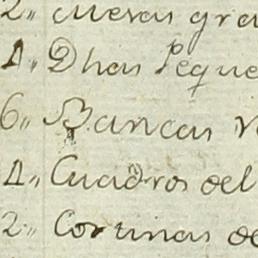 2,, nuevas gra
1,, Dhas Peque
6,, Bancas
1,, Cuadros del
2,, Cortinas de